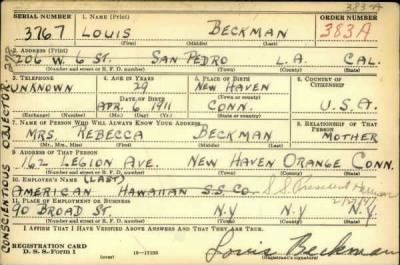 383A
SERIAL NUMBER 1. NAME (Print) ORDER NUMBER
3767 LOUIS BECKMAN 383A
(First) (Middle) (Last)
2. ADDRESS (Print)
206 W. 6 ST. SAN PEDRO L.A. CAL.
(Number and street or R. F. D. number) (Town) (County) (State)
3. TELEPHONE 4. AGE IN YEARS 5. PLACE OF BIRTH 6. COUNTRY OF CITIZENSHIP
UNKNOWN 29 NEW HAVEN
DATE OF BIRTH (Town or county)
APR. 6 1911 CONN. U.S.A.
(Exchange) (Number) (Mo.) (Day) (Yr.) (State or country)
7. NAME OF PERSON WHO WILL ALWAYS KNOW YOUR ADDRESS 8. RELATIONSHIP OF THAT PERSON
MRS. REBECCA BECKMAN MOTHER
(Mr., Mrs., Miss) (First) (Middle) (Last)
9. ADDRESS OF THAT PERSON
162 LEGION AVE. NEW HAVEN ORANGE CONN.
(Number and street or R. F. D. number) (Town) (County) (State)
10. EMPLOYER'S NAME (LAST)
AMERICAN HAWAIIAN S.S. CO. S.S. President
11. PLACE OF EMPLOYMENT OR BUSINESS
90 BROAD ST. N.Y. N.Y
(Number and street or R. F. D. number) (Town) (County) (State)
I AFFIRM THAT I HAVE VERIFIED ABOVE ANSWERS AND THAT THEY ARE TRUE.
REGISTRATION CARD
D. S. S. Form 1 16—17105 Louis Beckman
(Registrant's signature)
CONSCIENTIOUS OBJECTOR